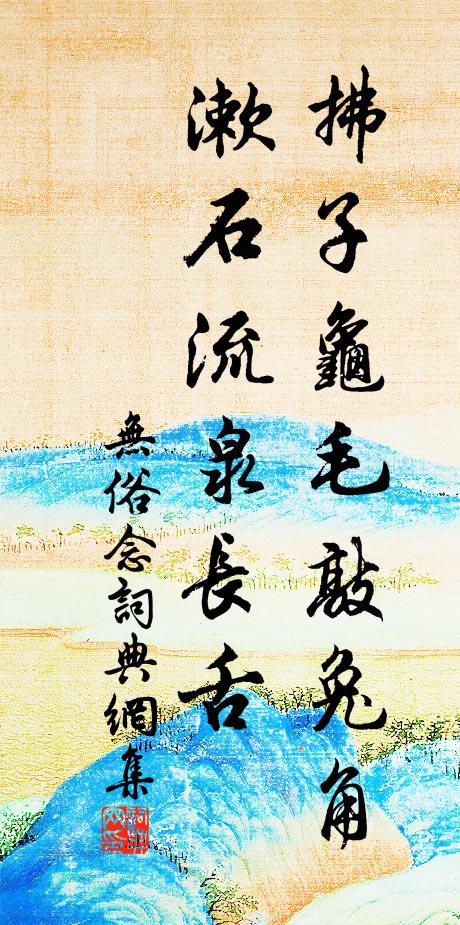 拂子龜毛敲兔角
漱石流泉長舌
無俗念詞典網集